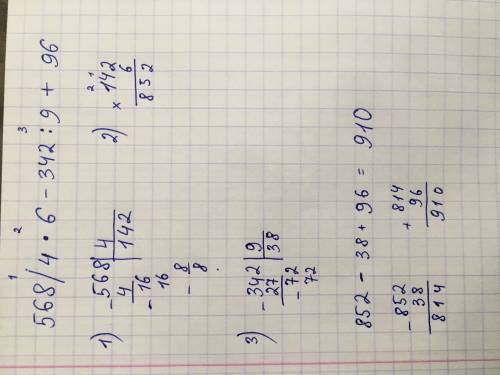 1 2 3
568/4 • 6 - 342 : 9 + 96
1) - 568 | 4
4 142
- 16
16
- 8
8
2) 2 1
× 142
6
852
3) - 342 | 9
27 38
- 72
72
852 - 38 + 96 = 910
- 852
38
814
+ 814
96
910